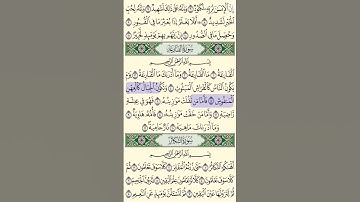 إِنَّ ٱلْإِنسَٰنَ لِرَبِّهِۦ لَكَنُودٌ ٦ وَإِنَّهُۥ عَلَىٰ ذَٰلِكَ لَشَهِيدٌ ٧ وَإِنَّهُۥ لِحُبِّ
ٱلْخَيْرِ لَشَدِيدٌ ٨ ۞ أَفَلَا يَعْلَمُ إِذَا بُعْثِرَ مَا فِى ٱلْقُبُورِ ٩
وَحُصِّلَ مَا فِى ٱلصُّدُورِ ١٠ إِنَّ رَبَّهُم بِهِمْ يَوْمَئِذٍ لَّخَبِيرٌ ١١
سُورَةُ القَارِعَةِ
بِسْمِ ٱللَّهِ ٱلرَّحْمَٰنِ ٱلرَّحِيمِ
ٱلْقَارِعَةُ ١ مَا ٱلْقَارِعَةُ ٢ وَمَآ أَدْرَىٰكَ مَا ٱلْقَارِعَةُ ٣ يَوْمَ
يَكُونُ ٱلنَّاسُ كَٱلْفَرَاشِ ٱلْمَبْثُوثِ ٤ وَتَكُونُ ٱلْجِبَالُ كَٱلْعِهْنِ
ٱلْمَنفُوشِ ٥ فَأَمَّا مَن ثَقُلَتْ مَوَٰزِينُهُۥ ٦ فَهُوَ فِى عِيشَةٍ
رَّاضِيَةٍ ٧ وَأَمَّا مَنْ خَفَّتْ مَوَٰزِينُهُۥ ٨ فَأُمُّهُۥ هَاوِيَةٌ ٩
وَمَآ أَدْرَىٰكَ مَا هِيَهْ ١٠ نَارٌ حَامِيَةٌۢ ١١
سُورَةُ التَّكَاثُرِ
بِسْمِ ٱللَّهِ ٱلرَّحْمَٰنِ ٱلرَّحِيمِ
أَلْهَىٰكُمُ ٱلتَّكَاثُرُ ١ حَتَّىٰ زُرْتُمُ ٱلْمَقَابِرَ ٢ كَلَّا سَوْفَ تَعْلَمُونَ ٣
ثُمَّ كَلَّا سَوْفَ تَعْلَمُونَ ٤ كَلَّا لَوْ تَعْلَمُونَ عِلْمَ ٱلْيَقِينِ ٥ لَتَرَوُنَّ ٱلْجَحِيمَ ٦
ثُمَّ لَتَرَوُنَّهَا عَيْنَ ٱلْيَقِينِ ٧ ثُمَّ لَتُسْـَٔلُنَّ يَوْمَئِذٍ عَنِ ٱلنَّعِيمِ ٨